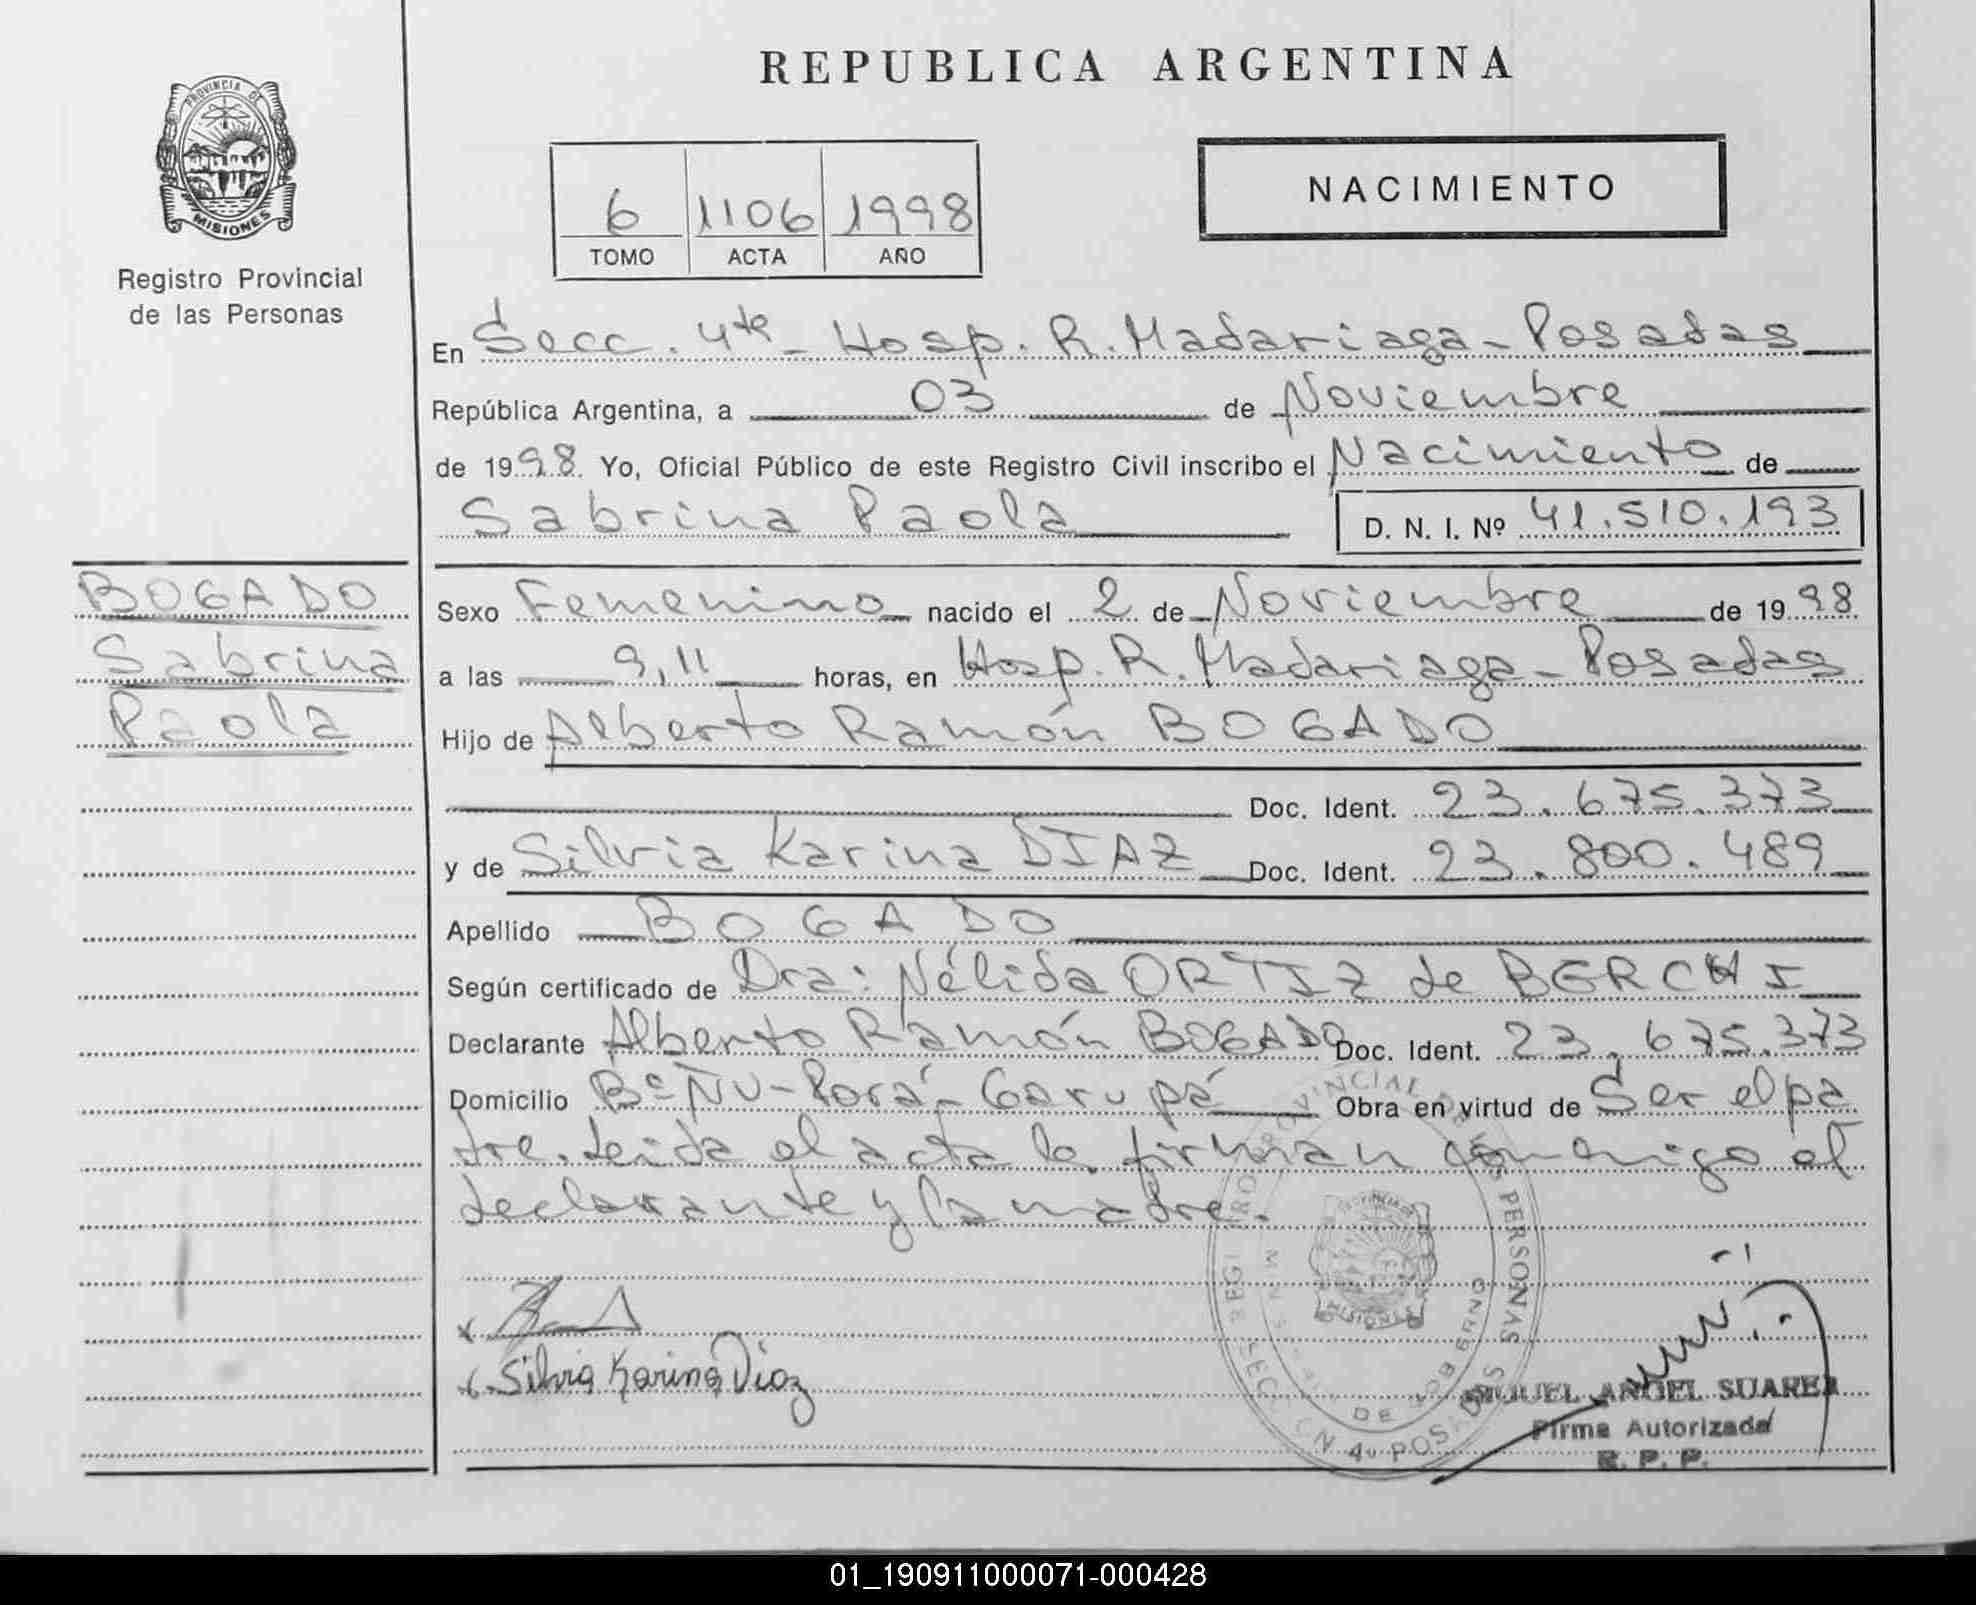 REPUBLICA ARGENTINA
PROVINCIA DE
MISIONES
Registro Provincial
de las Personas
6 1106 1998
TOMO ACTA AÑO
NACIMIENTO
En Secc. 4ta - Hosp. R. Madariaga - Posadas
República Argentina, a 03 de Noviembre
de 1998. Yo, Oficial Público de este Registro Civil inscribo el Nacimiento de
Sabrina Paola D. N. I. Nº 41.510.193
BOGADO
Sabrina
Paola
Sexo Femenino nacido el 2 de Noviembre de 1998
a las 9,11 horas, en Hosp. R. Madariaga - Posadas
Hijo de Alberto Ramón BOGADO
Doc. Ident. 23.675.373
y de Silvia Karina DIAZ Doc. Ident. 23.800.489
Apellido BOGADO
Según certificado de Dra: Nélida ORTIZ de BERCHI
Declarante Alberto Ramón BOGADO Doc. Ident. 23.675.373
Domicilio Bº Ñu-Porá - Garupá Obra en virtud de Ser el pa
dre. Leida el acta la firman conmigo el
declarante y la madre.
x
x. Silvia Karina Díaz
MISIONES
DE GOBIERNO
SECCION 4ª POSADAS
MIGUEL ANGEL SUAREZ
Firma Autorizada
R. P. P.
01_190911000071-000428